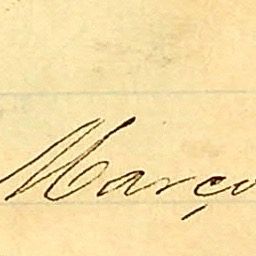 Março